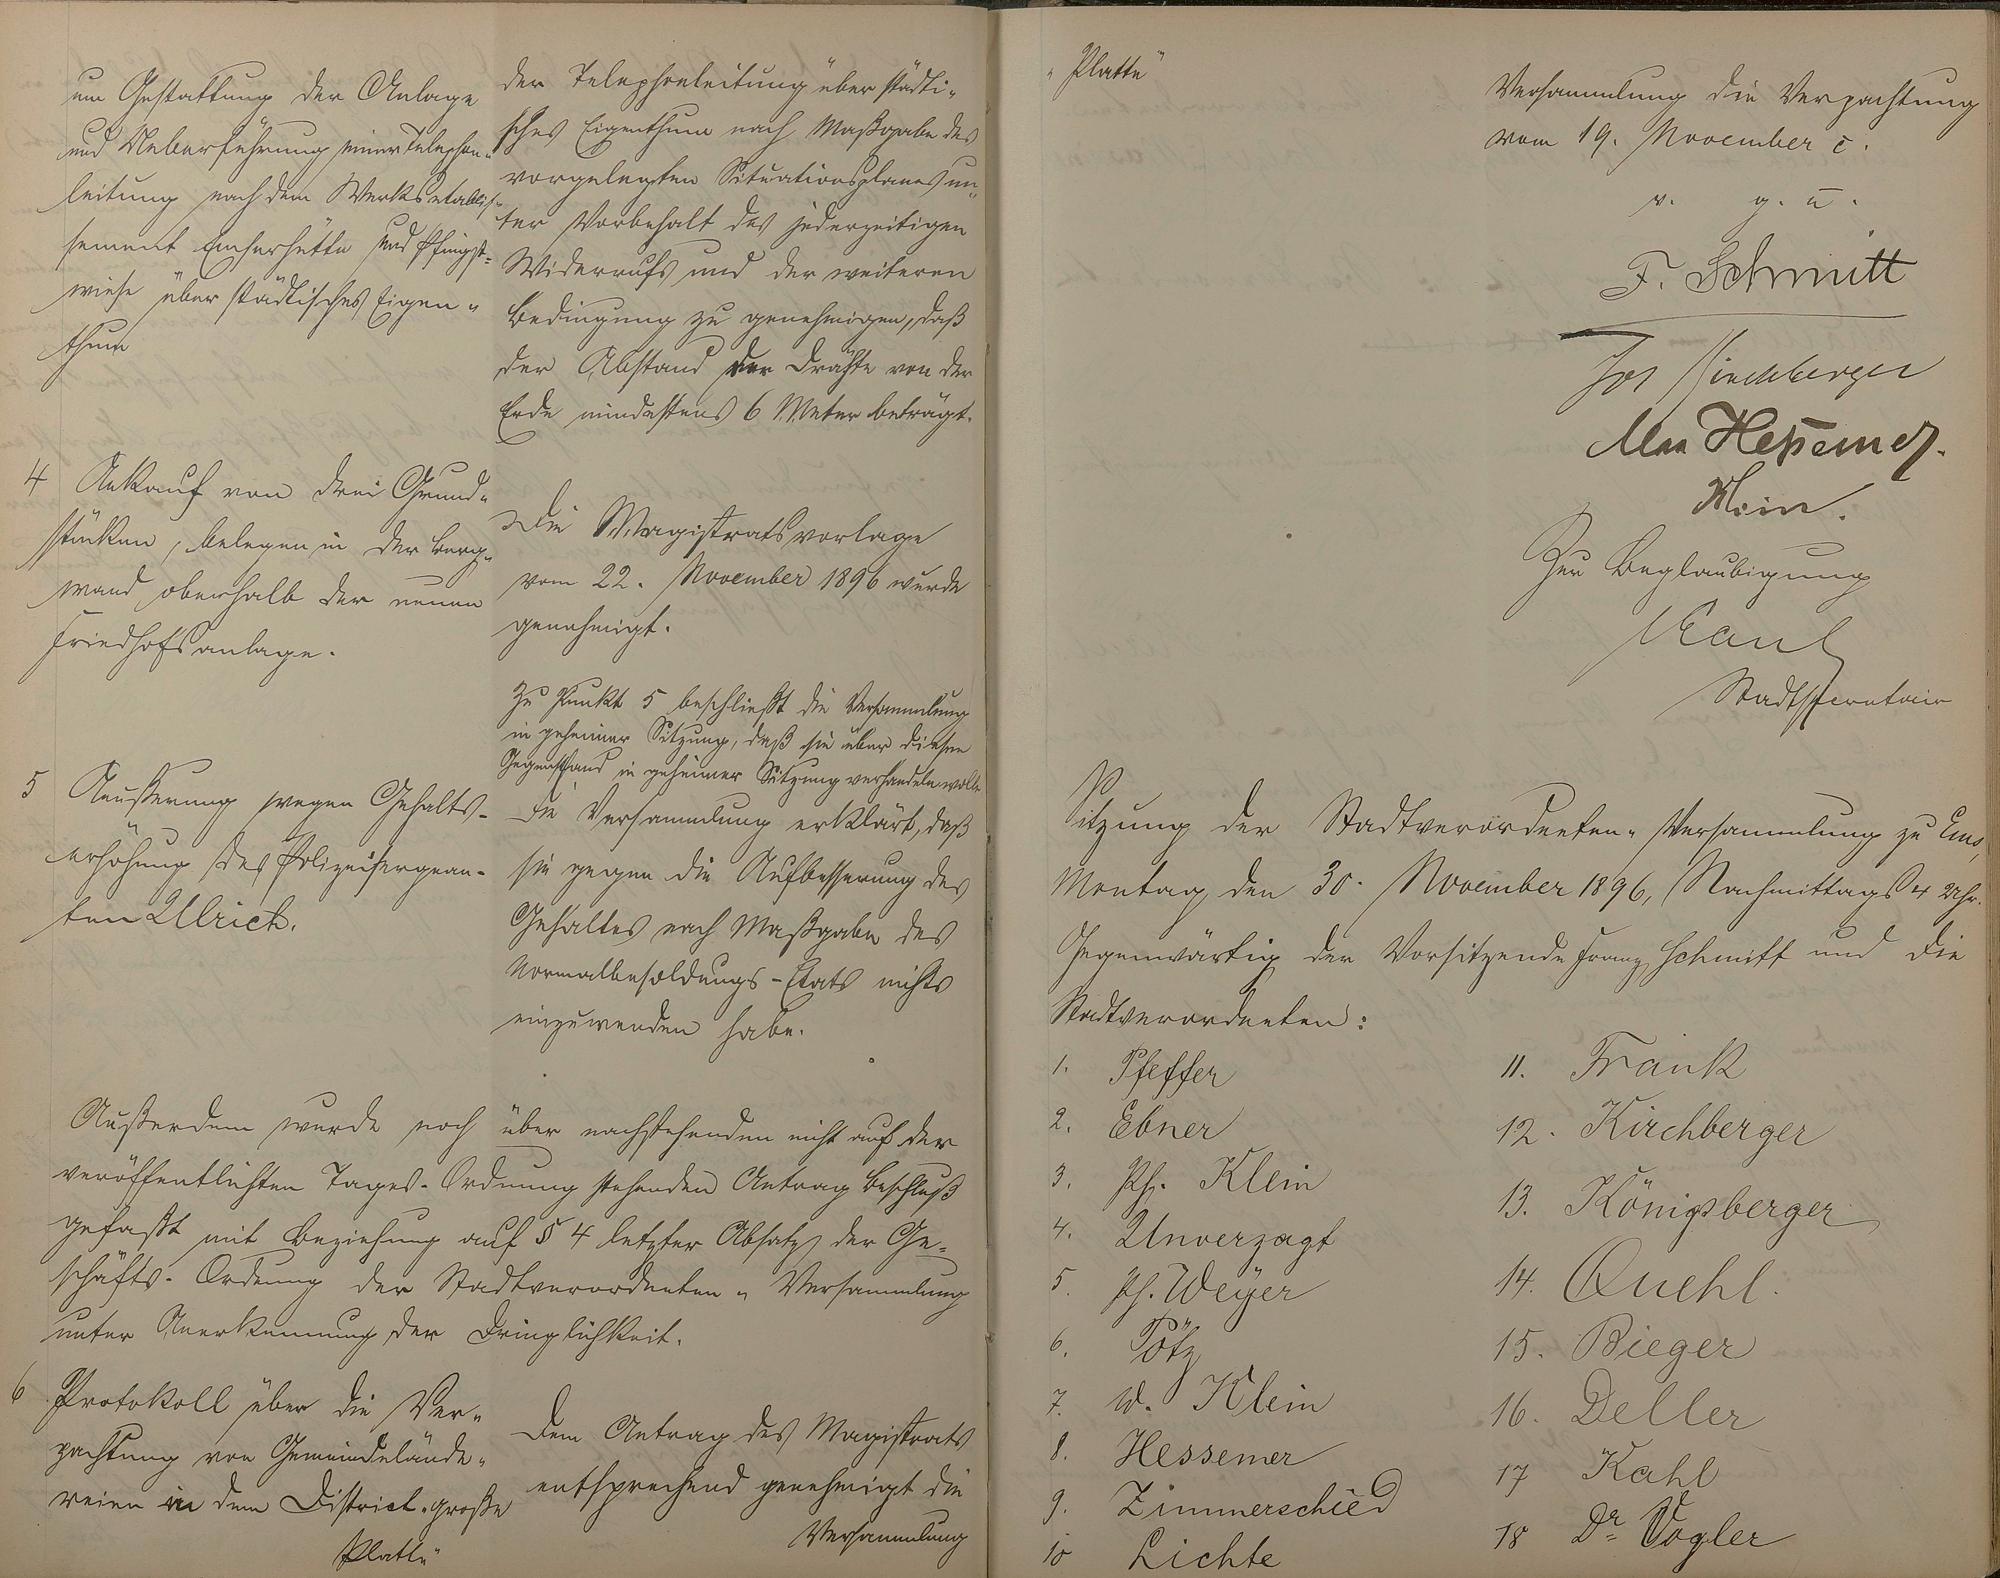 um Gestattung der Anlage
und Ueberführung einer Telephon-
leitung nach dem Werksetablis-
sement Emserhütte und Pfingst-
wiese über städtisches Eigen-
thum
der Telephonleitung über städti-
sches Eigenthum nach Maßgabe des
vorgelegten Situationsplanes un-
ter Vorbehalt des jederzeitigen
Widerrufs und der weiteren
Bedingung zu genehmigen, daß
der Abstand der Drähte von der
Erde mindestens 6 Meter beträgt.
4 Ankauf von drei Grund-
stücken, belegen in der Berg-
wand oberhalb der neuen
Friedhofsanlage.
Die Magistratsvorlage
vom 22. November 1896 wurde
genehmigt.
Zu Punkt 5 beschließt die Versammlung
in geheimer Sitzung, daß sie über diesen
Gegenstand in geheimer Sitzung verhandeln wolle
5 Aeußerung wegen Gehalts-
erhöhung des Polizeisergean-
ten Ulrich.
Die Versammlung erklärt, daß
sie gegen die Aufbesserung des
Gehaltes nach Maßgabe des
Normalbesoldungs-Etats nichts
einzuwenden habe.
Außerdem wurde noch über nachstehenden nicht auf der
veröffentlichten Tages-Ordnung stehenden Antrag Beschluß
gefaßt mit Beziehung auf § 4 letzter Absatz der Ge-
schäfts-Ordnung der Stadtverordneten-Versammlung
unter Anerkennung der Dringlichkeit.
6 Protokoll über die Ver-
pachtung von Gemeindelände-
reien in dem District "große
Platte"
Dem Antrag des Magistrats
entsprechend genehmigt die
Versammlung
"Platte"
Versammlung die Verpachtung
vom 19. November c.
v. g. u.
F. Schmitt
Jos Kirchberger
Max Hessemer.
Klein.
Zur Beglaubigung
Kaul
Stadtsecretair
Sitzung der Stadtverordneten-Versammlung zu Ems,
Montag den 30. November 1896, Nachmittags 4 Uhr.
Gegenwärtig der Vorsitzende Franz Schmitt und die
Stadtverordneten:
1. Pfeffer
2. Ebner
3. Ph. Klein
4. Unverzagt
5. Ph. Weyer
6. Pötz
7. W. Klein
8. Hessemer
9. Zimmerschied
10 Lichte
11. Frank
12. Kirchberger
13. Königsberger
14. Quehl.
15. Rieger
16. Deller
17 Kahl
18 Dr Vogler